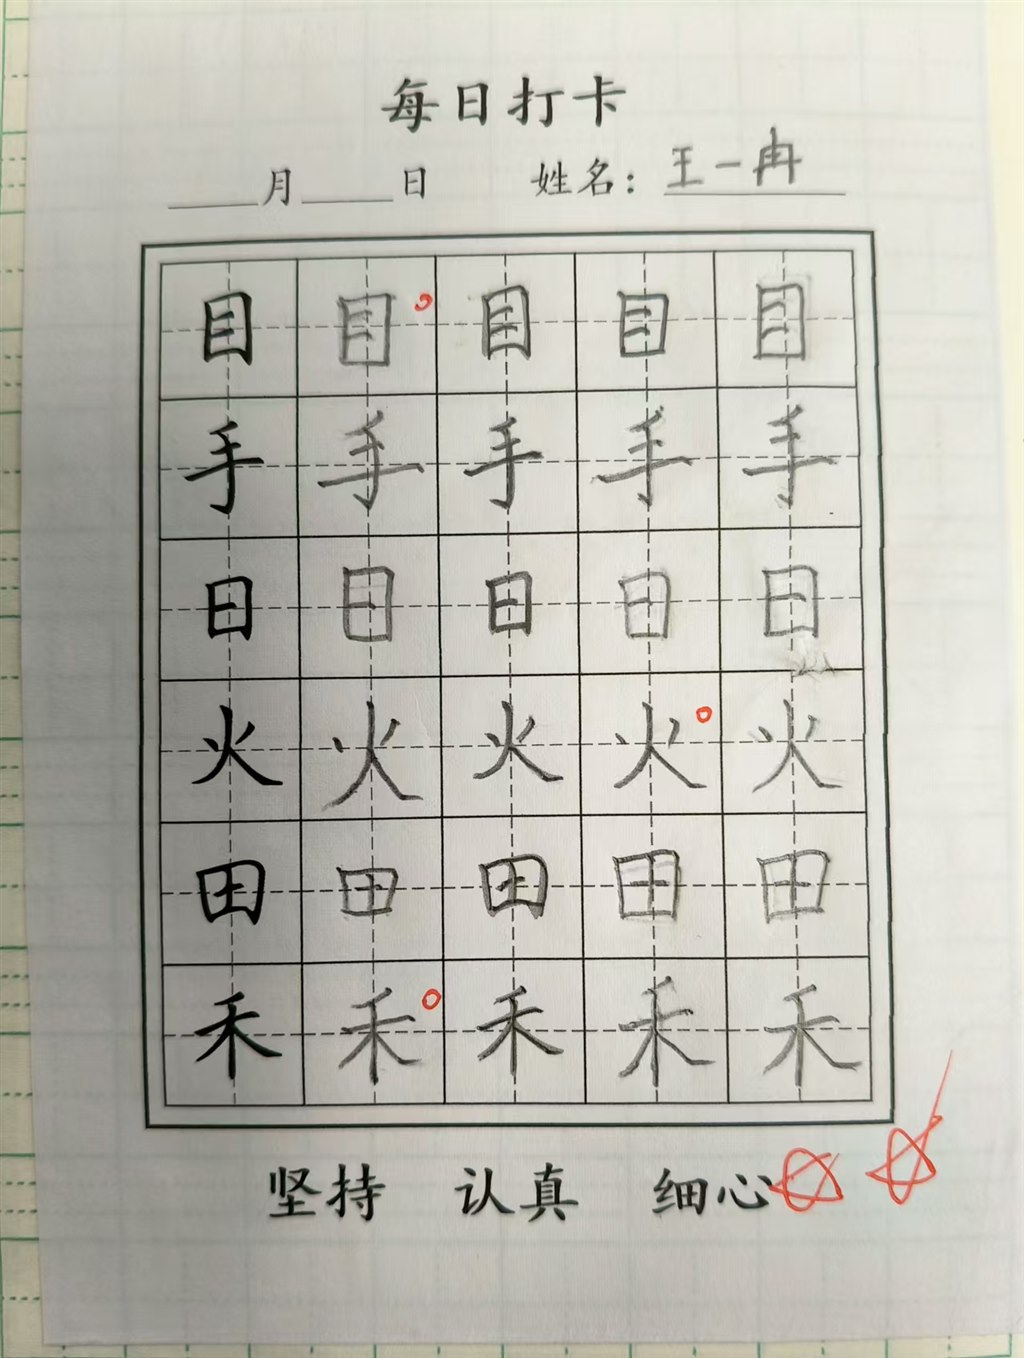 每日打卡
月 日 姓名：王一冉
目目目目目
手手手手手
日日日日日
火火火火火
田田田田田
禾禾禾禾禾
坚持 认真 细心